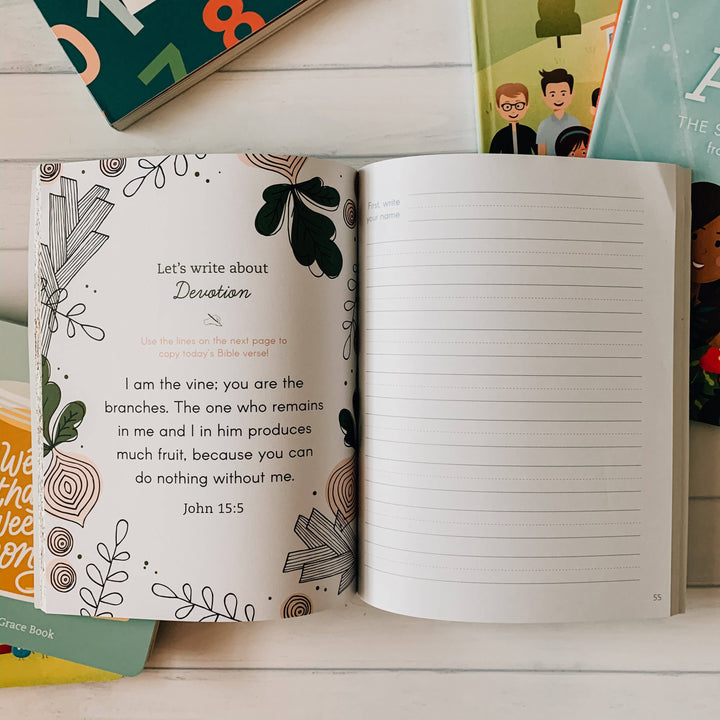 7
8
A
THE S
fro
Let's write about
Devotion
Use the lines on the next page to
copy today's Bible verse!
I am the vine; you are the
branches. The one who remains
in me and I in him produces
much fruit, because you can
do nothing without me.
John 15:5
First, write
your name
55
We
tha
wee
Grace Book